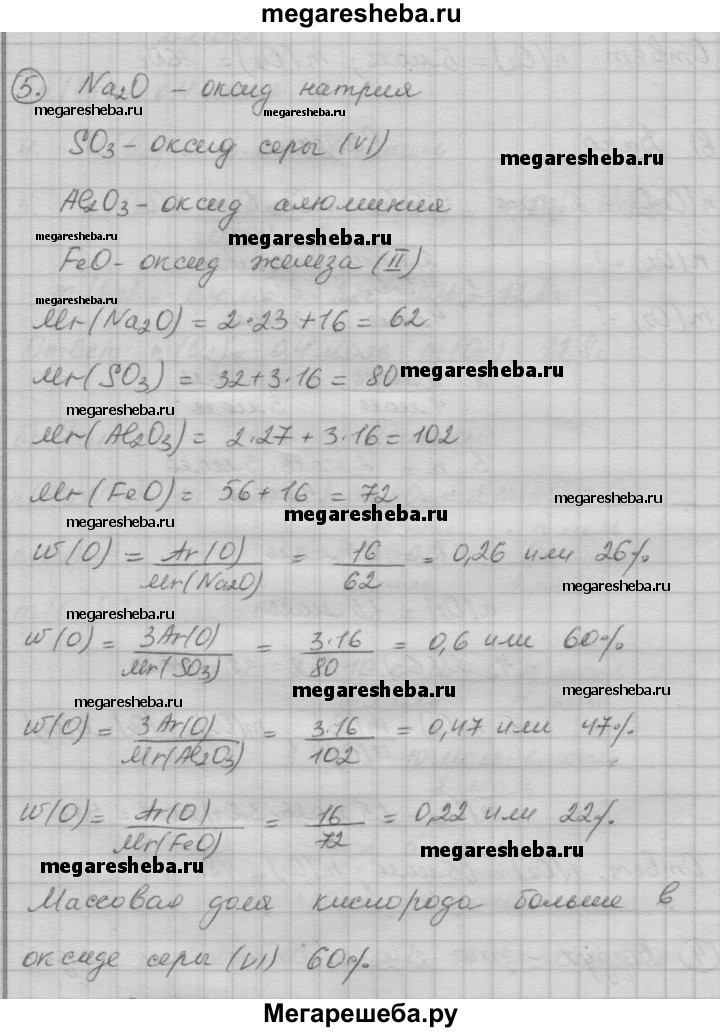 megaresheba.ru
5. Na₂O – оксид натрия
megaresheba.ru megaresheba.ru
SO₃ – оксид серы (VI)
megaresheba.ru
Al₂O₃ – оксид алюминия
megaresheba.ru megaresheba.ru
FeO – оксид железа (II)
Mr(Na₂O) = 2·23 + 16 = 62
Mr(SO₃) = 32 + 3·16 = 80
megaresheba.ru
megaresheba.ru
Mr(Al₂O₃) = 2·27 + 3·16 = 102
Mr(FeO) = 56 + 16 = 72
megaresheba.ru
megaresheba.ru megaresheba.ru
W(O) = Ar(O) / Mr(Na₂O) = 16 / 62 = 0,26 или 26%
megaresheba.ru
megaresheba.ru
W(O) = 3Ar(O) / Mr(SO₃) = 3·16 / 80 = 0,6 или 60%
megaresheba.ru megaresheba.ru
megaresheba.ru
W(O) = 3Ar(O) / Mr(Al₂O₃) = 3·16 / 102 = 0,47 или 47%
W(O) = Ar(O) / Mr(FeO) = 16 / 72 = 0,22 или 22%
megaresheba.ru megaresheba.ru
Массовая доля кислорода больше в
оксиде серы (VI) 60%.
Мегарешеба.ру